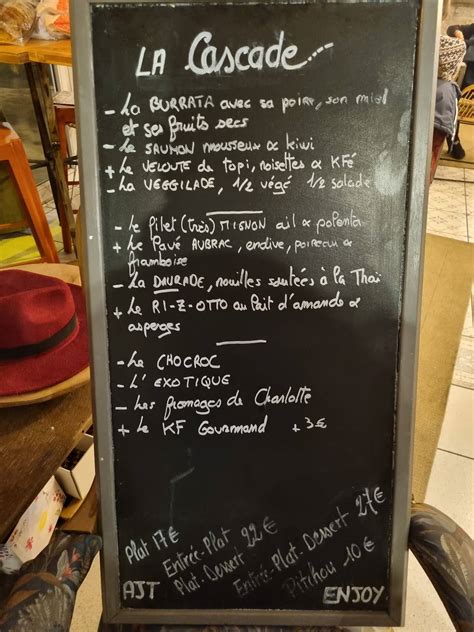 LA Cascade
- La BURRATA avec sa poire, son miel
et ses fruits secs
- Le SAUMON mousseux & kiwi
+ Le VELOUTE de topi, noisettes & KFé
- La VEGGILADE, 1/2 végé 1/2 salade
- Le filet (très) MIGNON ail & polenta
+ Le Pavé AUBRAC, endive, poireau &
framboise
- La DAURADE, nouilles sautées à la Thaï
+ Le RI-Z-OTTO au lait d'amande &
asperges
- Le CHOCROC
- L'EXOTIQUE
- Les fromages de Charlotte
+ Le KF Gourmand +3€
Plat 17€
Entrée-Plat
Plat-Dessert 22€
Entrée-Plat-Dessert 27€
Pitchou 10€
AJT ENJOY